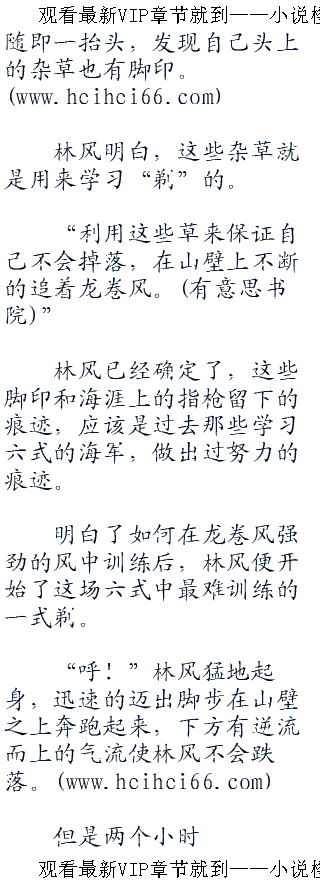 观看最新VIP章节就到——小说
随即一抬头，发现自己头上
的杂草也有脚印。
(www.hcihci66.com)
林风明白，这些杂草就
是用来学习“剃”的。
“利用这些草来保证自
己不会掉落，在山壁上不断
的追着龙卷风。(有意思书
院)”
林风已经确定了，这些
脚印和海涯上的指枪留下的
痕迹，应该是过去那些学习
六式的海军，做出过努力的
痕迹。
明白了如何在龙卷风强
劲的风中训练后，林风便开
始了这场六式中最难训练的
一式剃。
“呼！”林风猛地起
身，迅速的迈出脚步在山壁
之上奔跑起来，下方有逆流
而上的气流使林风不会跌
落。(www.hcihci66.com)
但是两个小时
观看最新VIP章节就到——小说